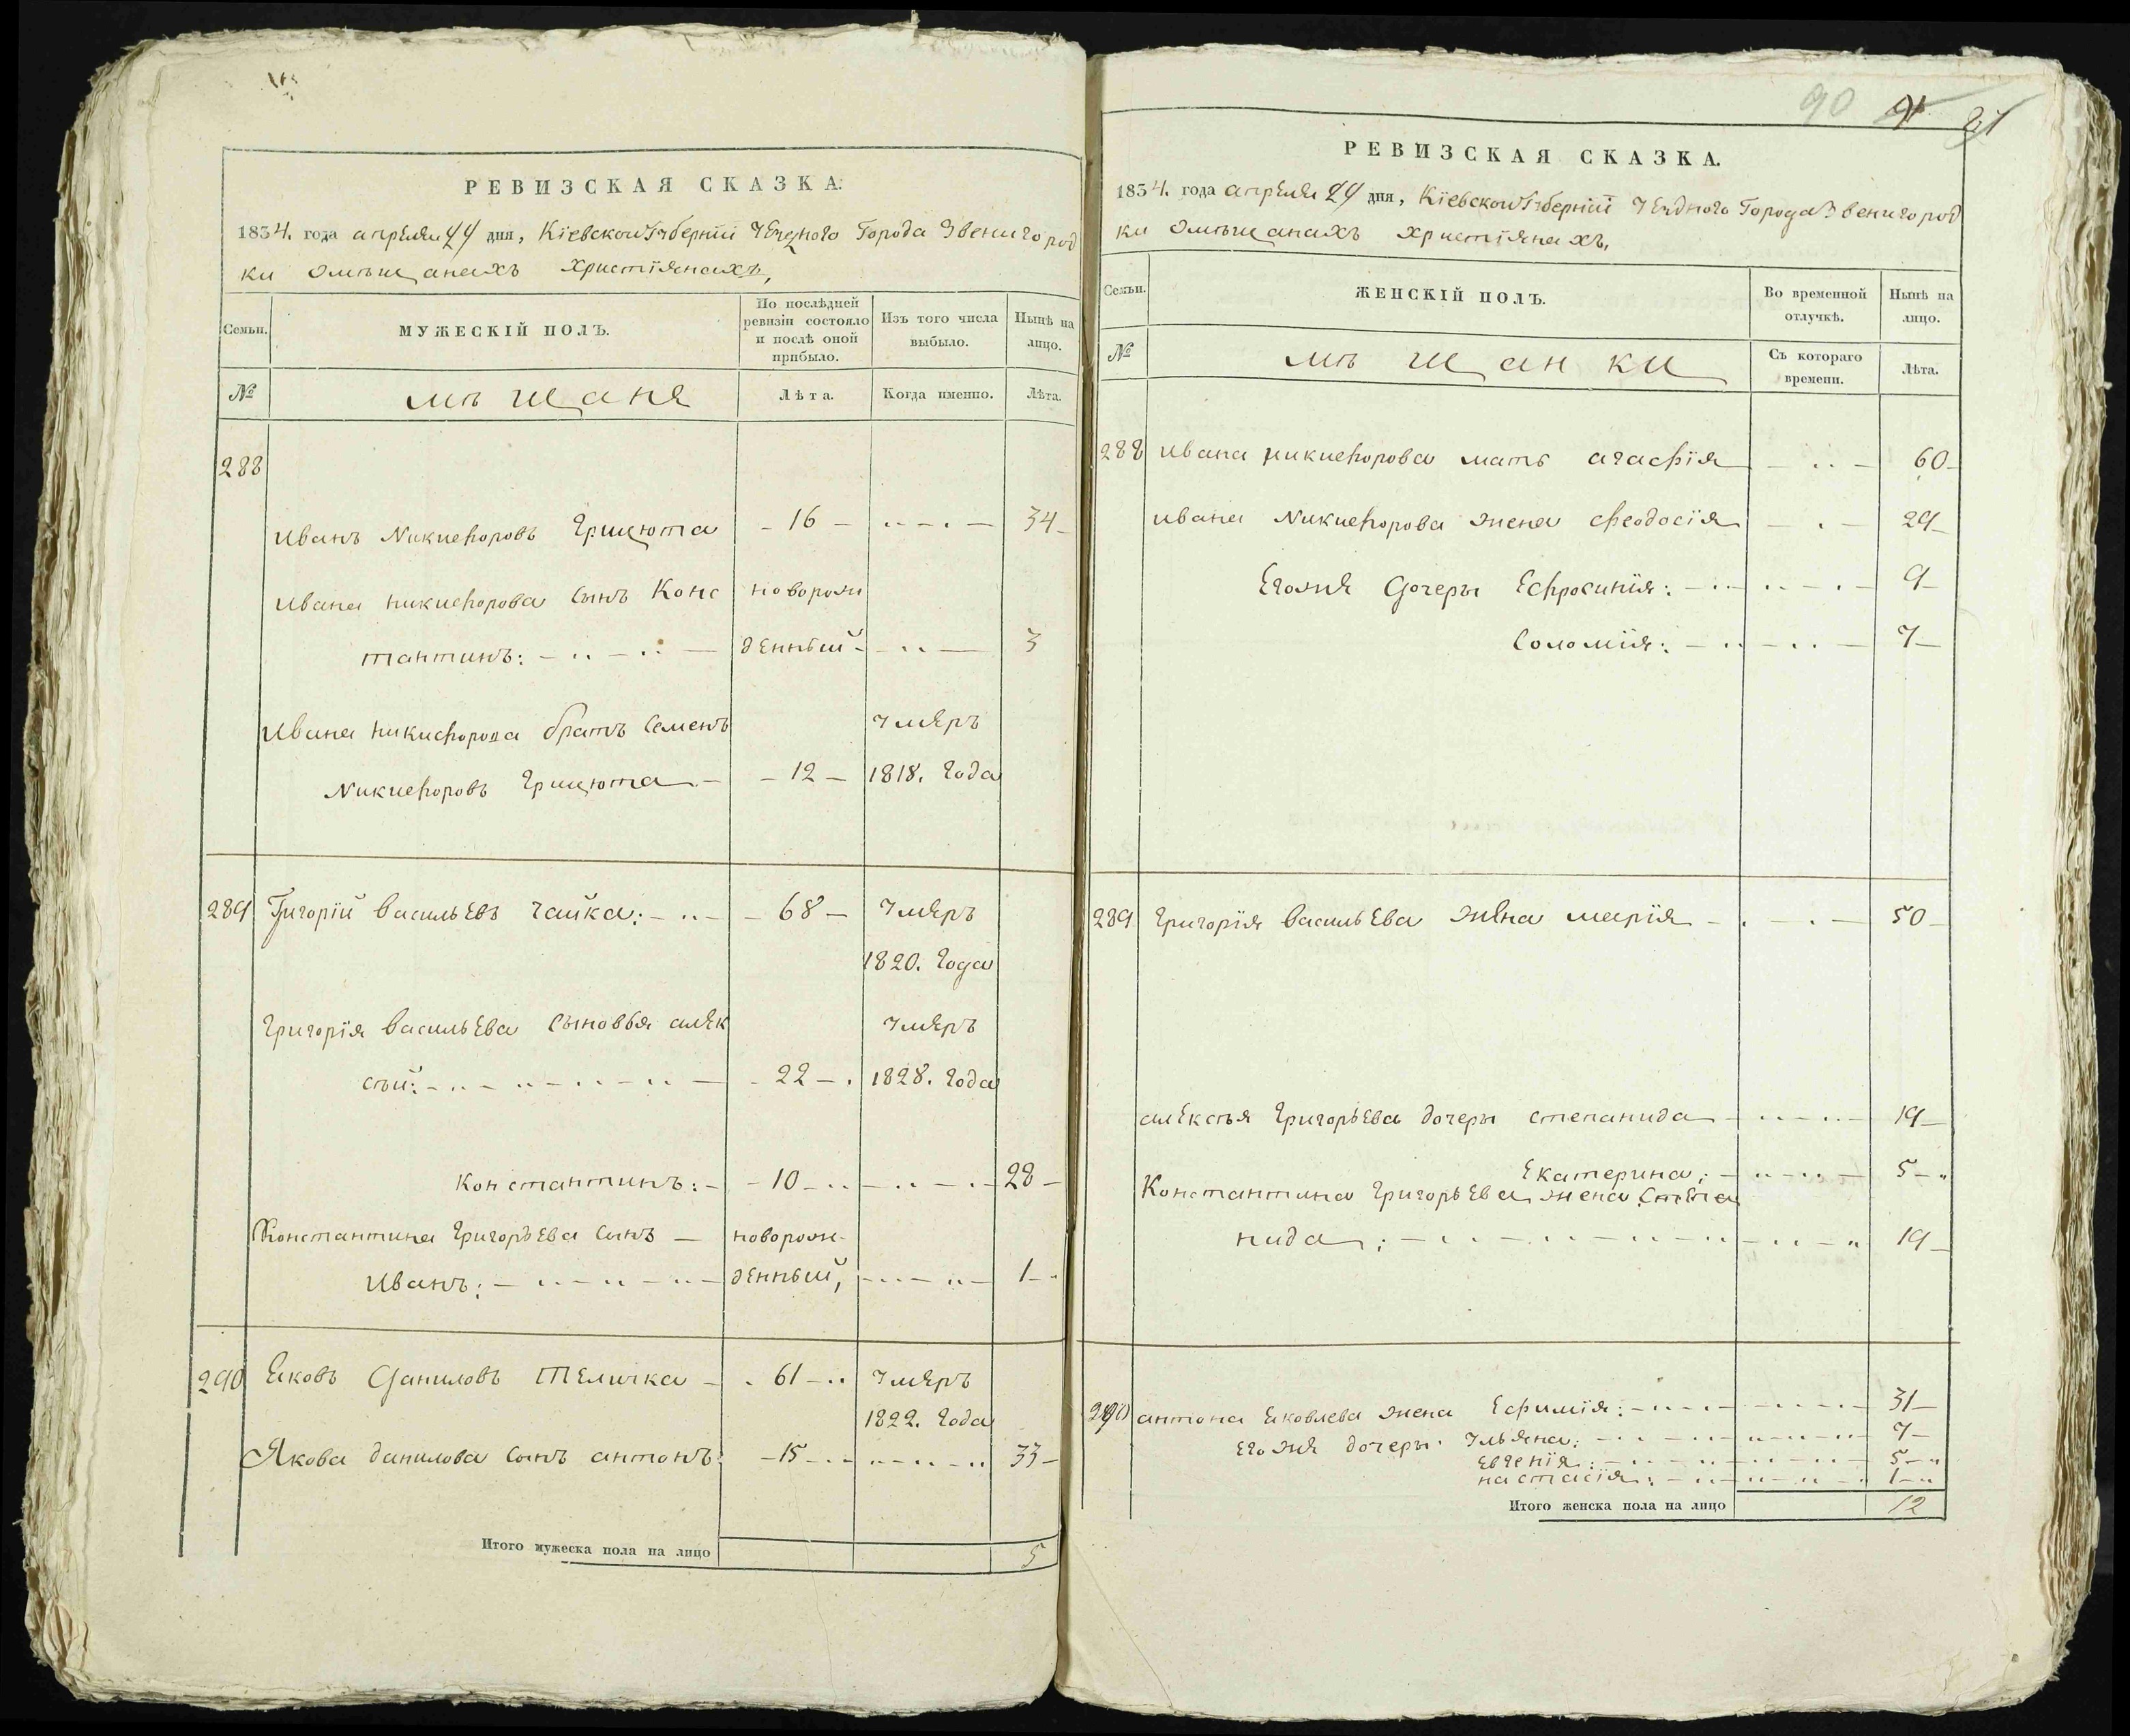 РЕВИЗСКАЯ СКАЗКА.
1834. года апреля 24 дня, Кіевской Губерніи Уезного Города Звенигород
ки Омѣщанахъ Христіянахъ,
Семьи.
МУЖЕСКІЙ ПОЛЪ.
По послѣдней ревизіи состояло и послѣ оной прибыло.
Изъ того числа выбыло.
Нынѣ на лицо.
№
мѣщаня
Лѣта.
Когда именно.
Лѣта.
288
Иванъ Никифоровъ Грицюта - 16 - 34
Ивана никифорова сынъ Конс новорож
тантинъ: денный 3
Ивана никифорова братъ Семенъ умеръ
Никифоровъ Грицюта - 12 - 1818. года
289 Григорій васильевъ чайка: - 68 - умеръ
1820. года
Григорія васильева сыновья алек умеръ
сѣй: - 22 - 1828. года
Константинъ: - 10 - 28 -
Константина Григорьева сынъ - новорож-
Иванъ: денный, 1 -
290 Яковъ Даниловъ Теличка - 61 - умеръ
1822. года
Якова данилова сынъ антонъ: - 15 - 33 -
Итого мужеска пола на лицо 5
90 91
РЕВИЗСКАЯ СКАЗКА.
1834. года апреля 24 дня, Кіевской Губерніи Уездного Города Звенигород
ки Омѣщанахъ христіянахъ,
Семьи.
ЖЕНСКІЙ ПОЛЪ.
Во временной отлучкѣ.
Нынѣ на лицо.
№
мѣщанки
Съ котораго времени.
Лѣта.
288 ивана никифорова мать агафія 60
ивана Никифорова жена феодосія 29
Егожя Дочеры Ефросинія: 9
Соломія: 7
289 Григорія васильева жена марія 50
алексѣя Григорьева дочеры степанида 19
Екатерина: 5
Константина Григорьева жена Степа
нида: 19
290 антона яковлева жена Ефимія: 31
Егожя дочеры: Ульяна: 7
Евгенія: 5
настасія: 1
Итого женска пола на лицо 12